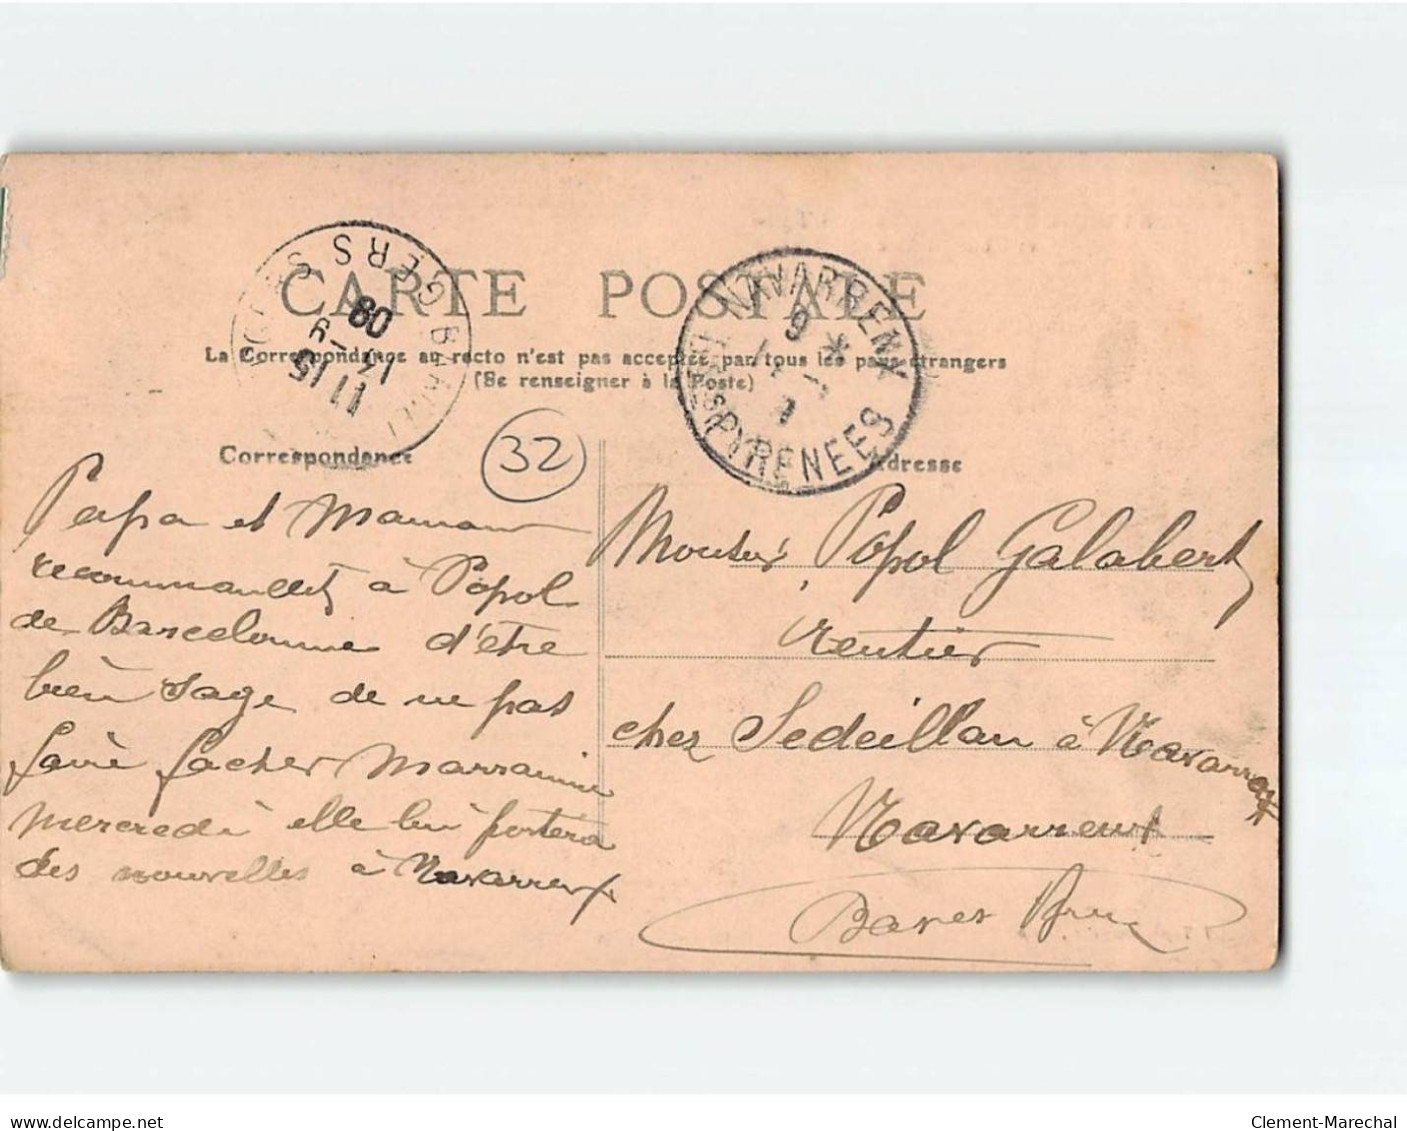 CARTE POSTALE
La Correspondance au recto n'est pas acceptée par tous les pays étrangers
(Se renseigner à la Poste)
GERS
11 15
14 - 9
08
NAVARRENX
9 *
PYRENEES
Correspondance
32
Adresse
Papa et Maman
recommandent à Popol
de Barcelonne d'être
bien sage de ne pas
faire facher Marraine
mercredi elle lui portera
des nouvelles à Navarrenx
Monsieur Popol Galabert
rentier
chez Sedeillan à Navarrenx
Navarrenx
Basses
delcampe.net
Clement-Marechal